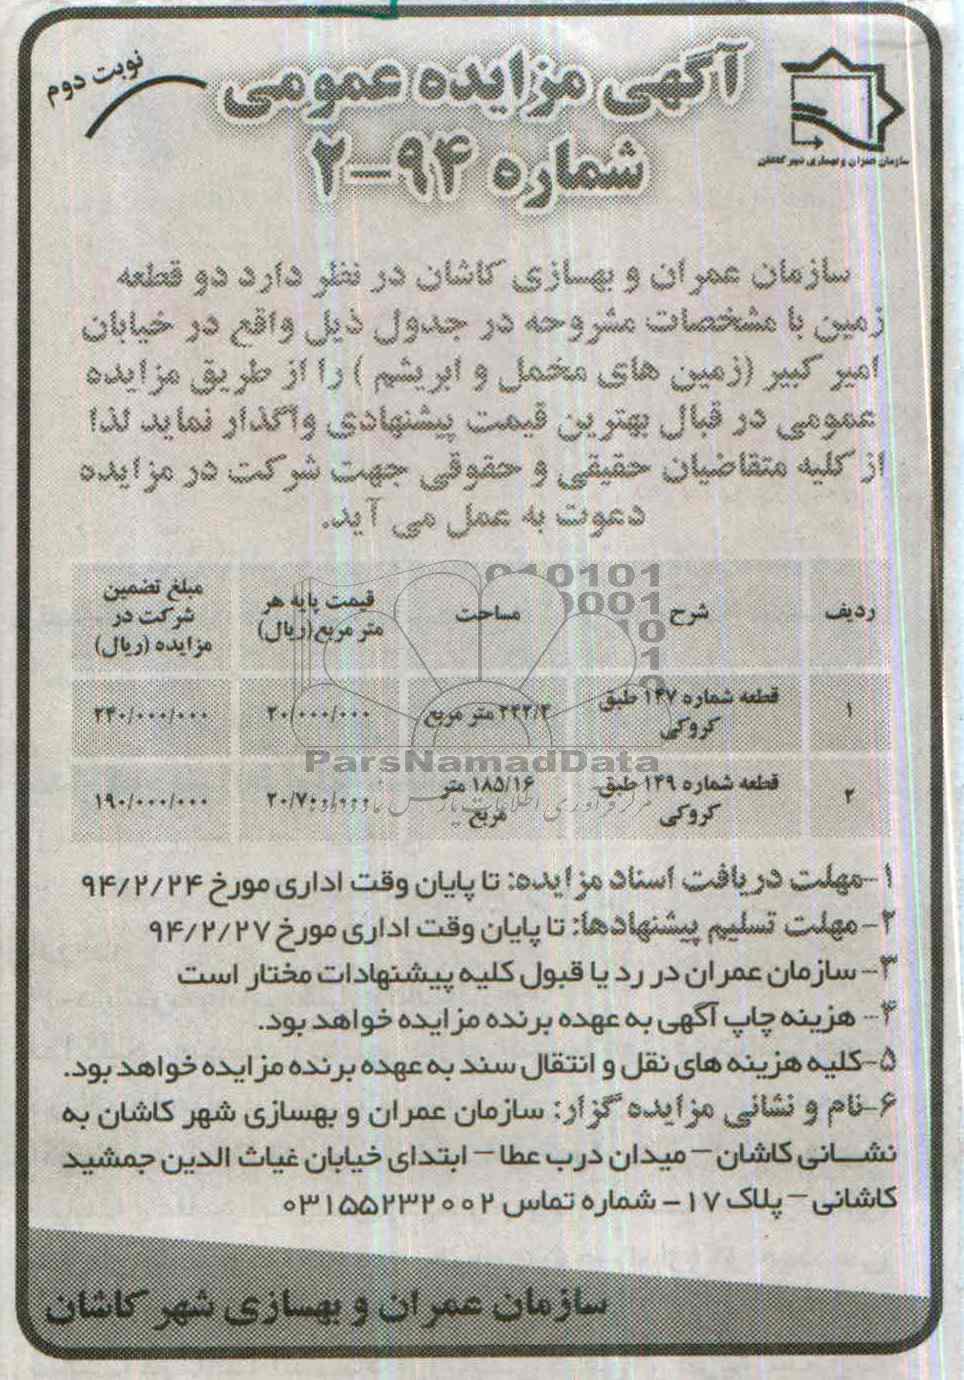 نوبت دوم
آگهی مزایده عمومی
شماره ۹۴-۲
سازمان عمران و بهسازی شهر کاشان
سازمان عمران و بهسازی کاشان در نظر دارد دو قطعه
زمین با مشخصات مشروحه در جدول ذیل واقع در خیابان
امیر کبیر (زمین های مخمل و ابریشم ) را از طریق مزایده
عمومی در قبال بهترین قیمت پیشنهادی واگذار نماید لذا
از کلیه متقاضیان حقیقی و حقوقی جهت شرکت در مزایده
دعوت به عمل می آید.
ردیف شرح مساحت قیمت پایه هر متر مربع(ریال) مبلغ تضمین شرکت در مزایده (ریال)
۱ قطعه شماره ۱۴۷ طبق کروکی متر مربع ۲۰/۰۰۰/۰۰۰ ۲۴۰/۰۰۰/۰۰۰
۲ قطعه شماره ۱۴۹ طبق کروکی ۱۸۵/۱۶ متر مربع ۲۰/۷۰۰/۰۰۰ ۱۹۰/۰۰۰/۰۰۰
ParsNamadData
۱-مهلت دریافت اسناد مزایده: تا پایان وقت اداری مورخ ۹۴/۲/۲۴
۲-مهلت تسلیم پیشنهادها: تا پایان وقت اداری مورخ ۹۴/۲/۲۷
۳- سازمان عمران در رد یا قبول کلیه پیشنهادات مختار است
۴- هزینه چاپ آگهی به عهده برنده مزایده خواهد بود.
۵-کلیه هزینه های نقل و انتقال سند به عهده برنده مزایده خواهد بود.
۶-نام و نشانی مزایده گزار: سازمان عمران و بهسازی شهر کاشان به
نشانی کاشان – میدان درب عطا – ابتدای خیابان غیاث الدین جمشید
کاشانی – پلاک ۱۷ - شماره تماس ۰۳۱۵۵۲۳۲۰۰۲
سازمان عمران و بهسازی شهر کاشان